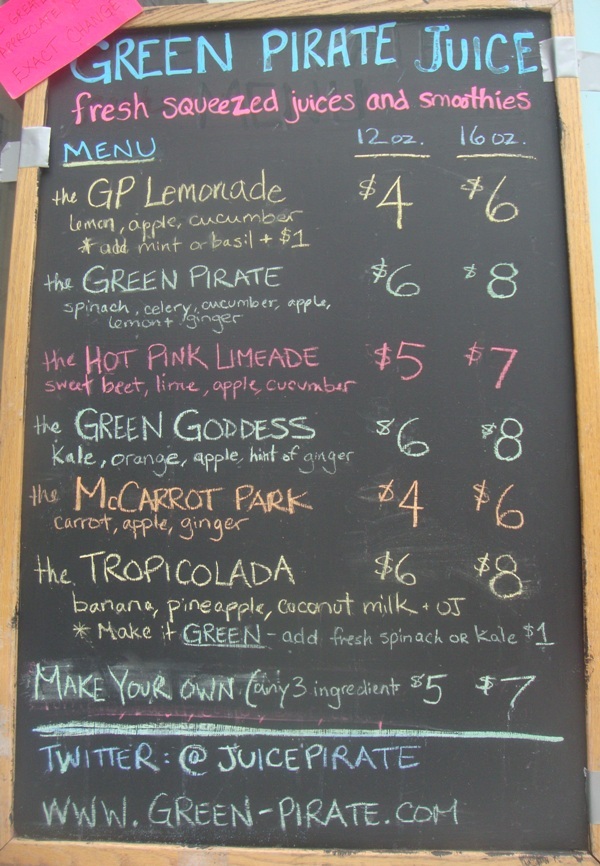 APPRECIATE
EXACT CHANGE
GREEN PIRATE JUICE
fresh squeezed juices and smoothies
MENU 12 oz. 16 oz.
the GP Lemonade $4 $6
lemon, apple, cucumber
* add mint or basil + $1
the GREEN PIRATE $6 $8
spinach, celery, cucumber, apple,
lemon + ginger
the HOT PINK LIMEADE $5 $7
sweet beet, lime, apple, cucumber
the GREEN GODDESS $6 $8
Kale, orange, apple, hint of ginger
the McCARROT PARK $4 $6
carrot, apple, ginger
the TROPICOLADA $6 $8
banana, pineapple, coconut milk + OJ
* Make it GREEN - add fresh spinach OR Kale $1
MAKE YOUR OWN (any 3 ingredient $5 $7
TWITTER: @ JUICEPIRATE
WWW.GREEN-PIRATE.COM